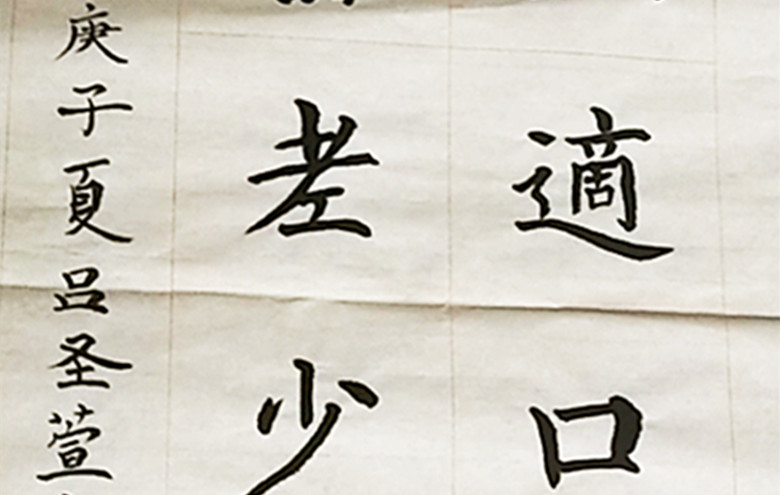 適口
老少
庚子夏吕圣萱